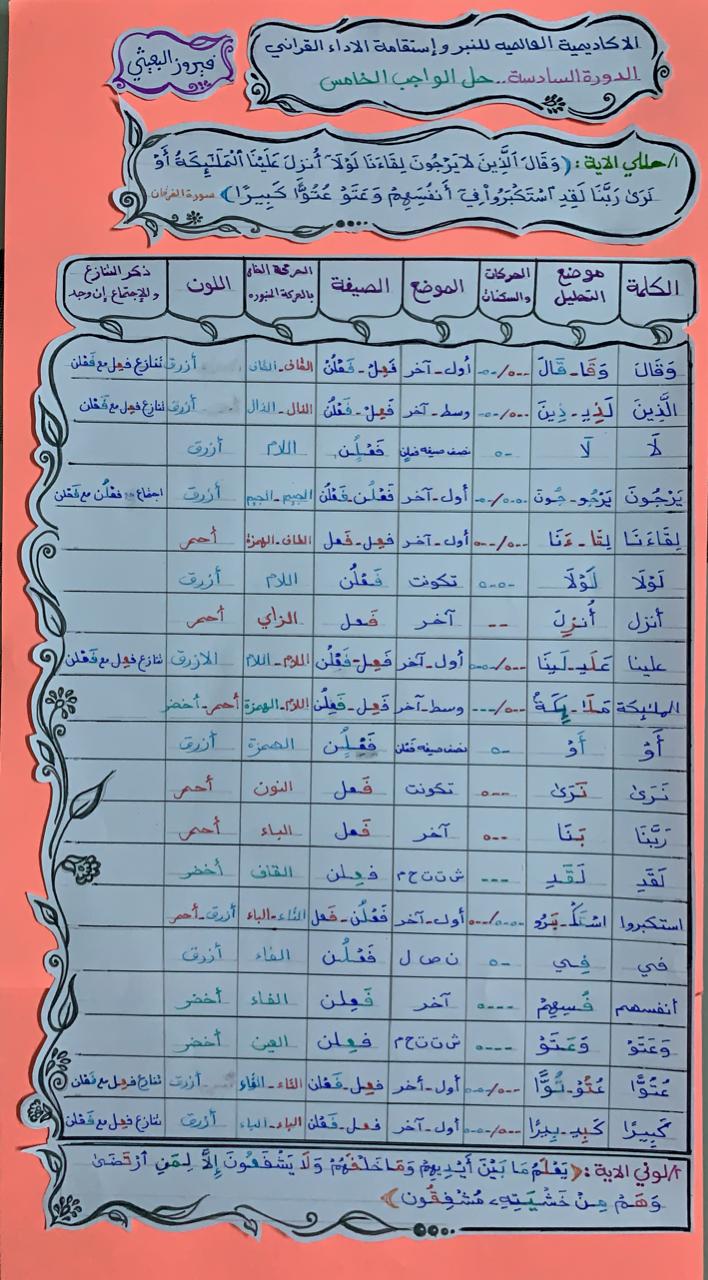 الاكاديمية العالميه للنبر وإستقامة الاداء القراني
الدورة السادسة.. حل الواجب الخامس
فيروز البعيثي
١/حللي الاية : ﴿وَقَالَ ٱلَّذِينَ لَا يَرْجُونَ لِقَاءَنَا لَوْلَآ أُنزِلَ عَلَيْنَا ٱلْمَلَٰٓئِكَةُ أَوْ
نَرَىٰ رَبَّنَا لَقَدِ ٱسْتَكْبَرُوا۟ فِىٓ أَنفُسِهِمْ وَعَتَوْ عُتُوًّا كَبِيرًا﴾ سورة الفرقان
الكلمة موضع التحليل الحركات والسكنات الموضع الصيغة الحركة بالحركة المنبوره اللون ذكر التنازع وللإجتماع إن وجد
وَقَالَ وَقَا - قَالَ أول - آخر فَعِلْ - فَعْلُنْ القاف - القاف أزرق تنازع فعل مع فَعْلن
الَّذِينَ لَذِيـ - ذِينَ وسط - آخر فَعِلْ - فَعْلُنْ الذال - الذال أزرق تنازع فعل مع فَعْلن
لَا لَا ٥- نصف صيغه فعلن فَعْلُن اللام أزرق
يَرْجُونَ يَرْجُو - جُونَ أول - آخر فَعْلُن - فَعْلُن الجيم - الجيم أزرق اجتماع فَعْلُن مع فَعْلن
لِقَاءَنَا لِقَا - ءَنَا أول - آخر فعل - فعل القاف - الهمزة أحمر
لَوْلَا لَوْلَا ٥-٥- تكونت فَعْلُن اللام أزرق
أنزل أُنزِلَ -- آخر فَعل الزاي أحمر
علينا عَلَيـ - لَينَا أول - آخر فعل - فَعْلُن اللام - اللام الازرق تنازع فعل مع فَعْلن
الملئِكة مَلَا - ئِكَةُ وسط - آخر فَعل - فَعِلُن اللام - الهمزة أحمر - أخضر
أَوْ أَوْ ٥- نصف صيغه فَعْلن فَعْلُن الهمزة أزرق
نَرَىٰ نَرَىٰ ٥-- تكونت فَعل النون أحمر
رَبَّنَا بَنَا ٥-- آخر فَعل الباء أحمر
لَقَدِ لَقَدِ --- ش ت ت ح م فعلن القاف أخضر
استكبروا اسْتَكْـ - بَرُو أول - آخر فَعْلُن - فَعل التاء - الباء أزرق - أحمر
في فِي ٥- ن ص ل فَعْلُن الفاء أزرق
أنفسهم فُسِهِمْ ٥--- آخر فَعِلن الفاء أخضر
وَعَتَوْ وَعَتَوْ ٥--- ش ت ت ح م فعلن العين أخضر
عُتُوًّا عُتُوْ - تُوًّا أول - أخر فعل - فَعْلن التاء - التاء أزرق تنازع فعل مع فَعْلن
كَبِيرًا كَبِيـ - بِيرًا أول - آخر فعل - فَعْلن الباء - الباء أزرق تنازع فعل مع فَعْلن
٢/لوني الاية : ﴿يَعْلَمُ مَا بَيْنَ أَيْدِيهِمْ وَمَا خَلْفَهُمْ وَلَا يَشْفَعُونَ إِلَّا لِمَنِ ٱرْتَضَىٰ
وَهُمْ مِنْ خَشْيَتِهِۦ مُشْفِقُونَ﴾